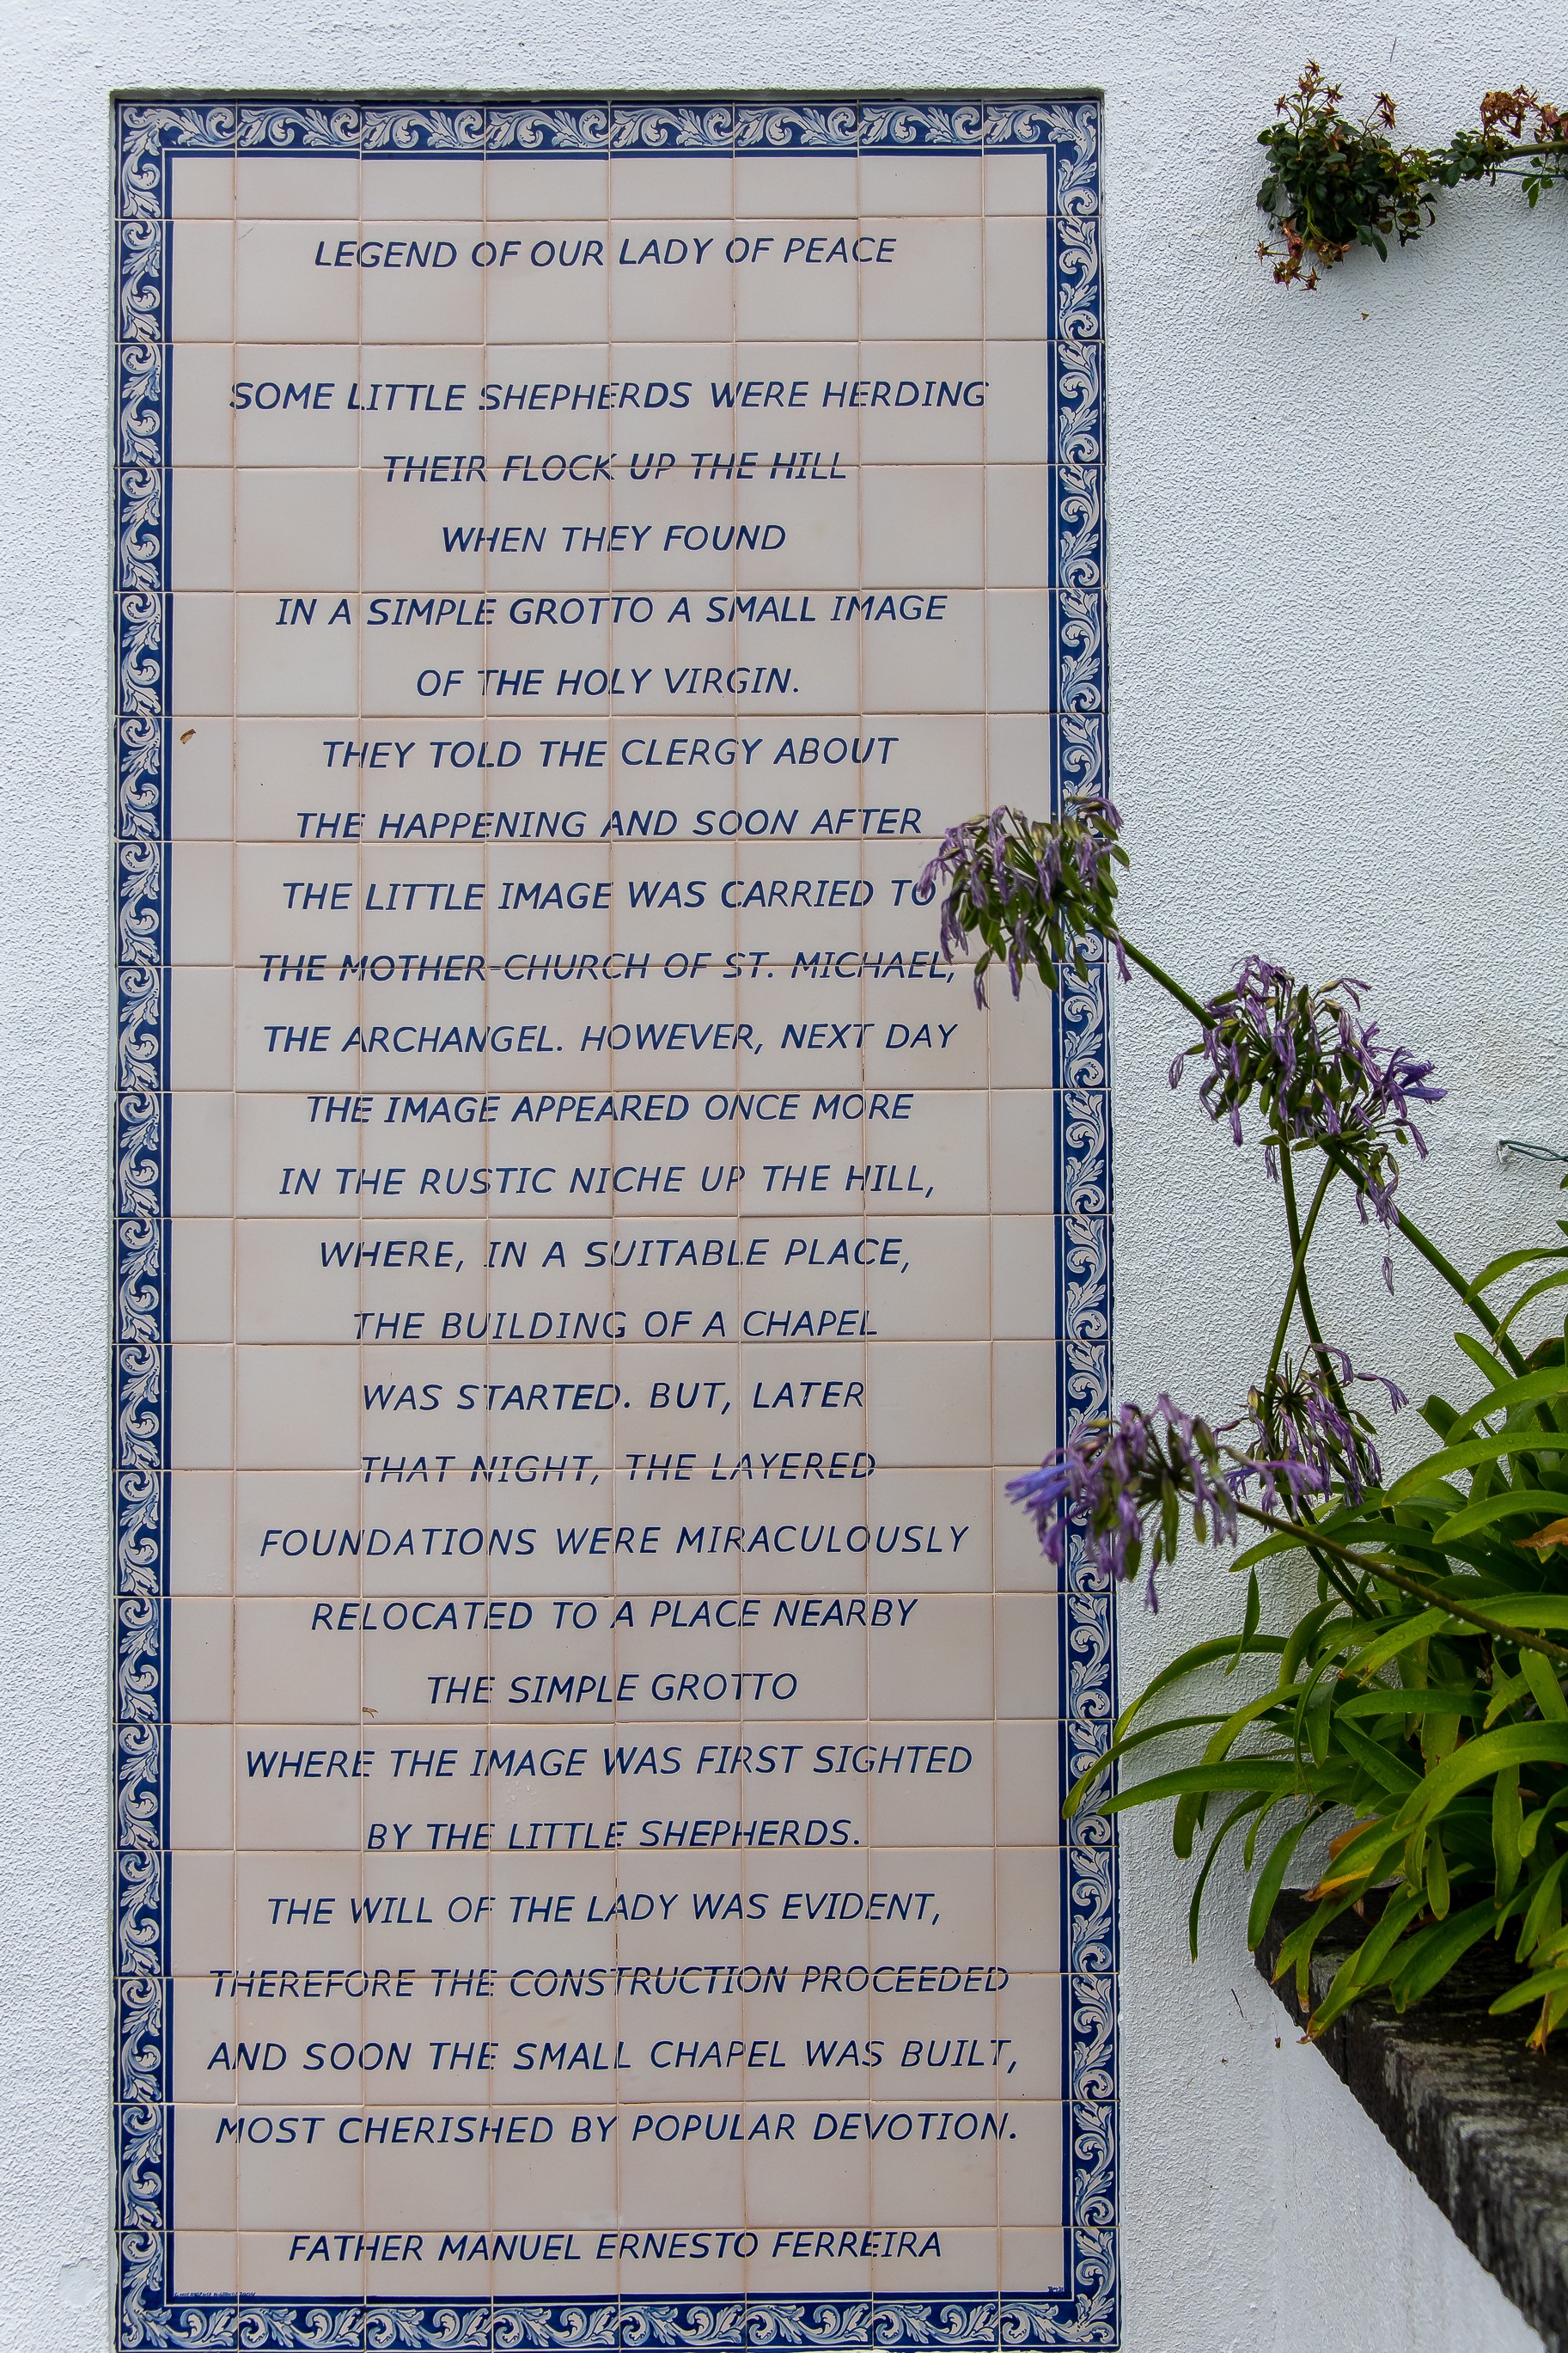 LEGEND OF OUR LADY OF PEACE
SOME LITTLE SHEPHERDS WERE HERDING
THEIR FLOCK UP THE HILL
WHEN THEY FOUND
IN A SIMPLE GROTTO A SMALL IMAGE
OF THE HOLY VIRGIN.
THEY TOLD THE CLERGY ABOUT
THE HAPPENING AND SOON AFTER
THE LITTLE IMAGE WAS CARRIED TO
THE MOTHER-CHURCH OF ST. MICHAEL,
THE ARCHANGEL. HOWEVER, NEXT DAY
THE IMAGE APPEARED ONCE MORE
IN THE RUSTIC NICHE UP THE HILL,
WHERE, IN A SUITABLE PLACE,
THE BUILDING OF A CHAPEL
WAS STARTED. BUT, LATER
THAT NIGHT, THE LAYERED
FOUNDATIONS WERE MIRACULOUSLY
RELOCATED TO A PLACE NEARBY
THE SIMPLE GROTTO
WHERE THE IMAGE WAS FIRST SIGHTED
BY THE LITTLE SHEPHERDS.
THE WILL OF THE LADY WAS EVIDENT,
THEREFORE THE CONSTRUCTION PROCEEDED
AND SOON THE SMALL CHAPEL WAS BUILT,
MOST CHERISHED BY POPULAR DEVOTION.
FATHER MANUEL ERNESTO FERREIRA